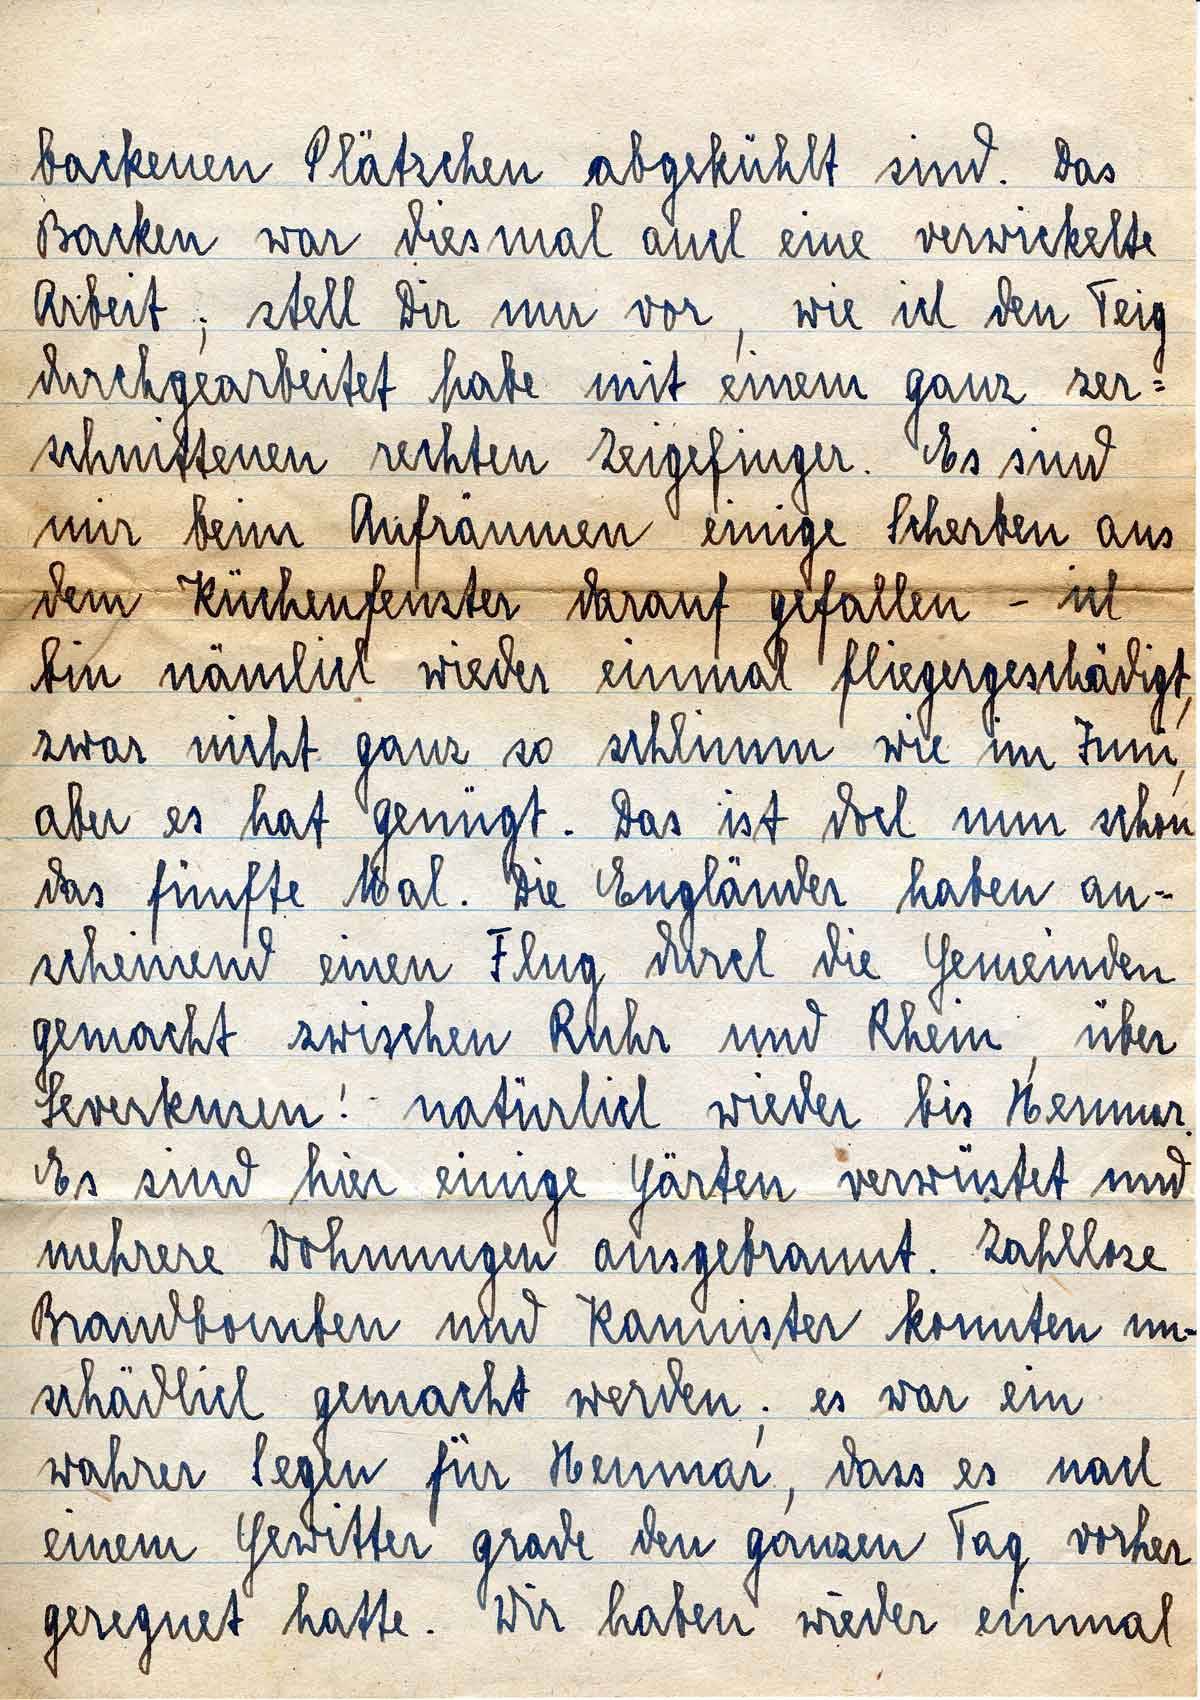 backenen Plätzchen abgekühlt sind. Das
Backen war diesmal auch eine verwickelte
Arbeit; stell Dir nur vor, wie ich den Teig
durchgearbeitet habe mit einem ganz zer=
schnittenen rechten Zeigefinger. Es sind
mir beim Aufräumen einige Scherben aus
dem Küchenfenster darauf gefallen - ich
bin nämlich wieder einmal fliegergeschädigt,
zwar nicht ganz so schlimm wie im Juni,
aber es hat genügt. Das ist doch nun schon
das fünfte Mal. Die Engländer haben an=
scheinend einen Flug durch die Gemeinden
gemacht zwischen Ruhr und Rhein, über
Leverkusen! natürlich wieder bis Heumar.
Es sind hier einige Gärten verwüstet und
mehrere Wohnungen ausgebrannt. Zahllose
Brandbomben und Kannister konnten un=
schädlich gemacht werden; es war ein
wahrer Segen für Heumar, dass es nach
einem Gewitter grade den ganzen Tag vorher
geregnet hatte. Wir haben wieder einmal